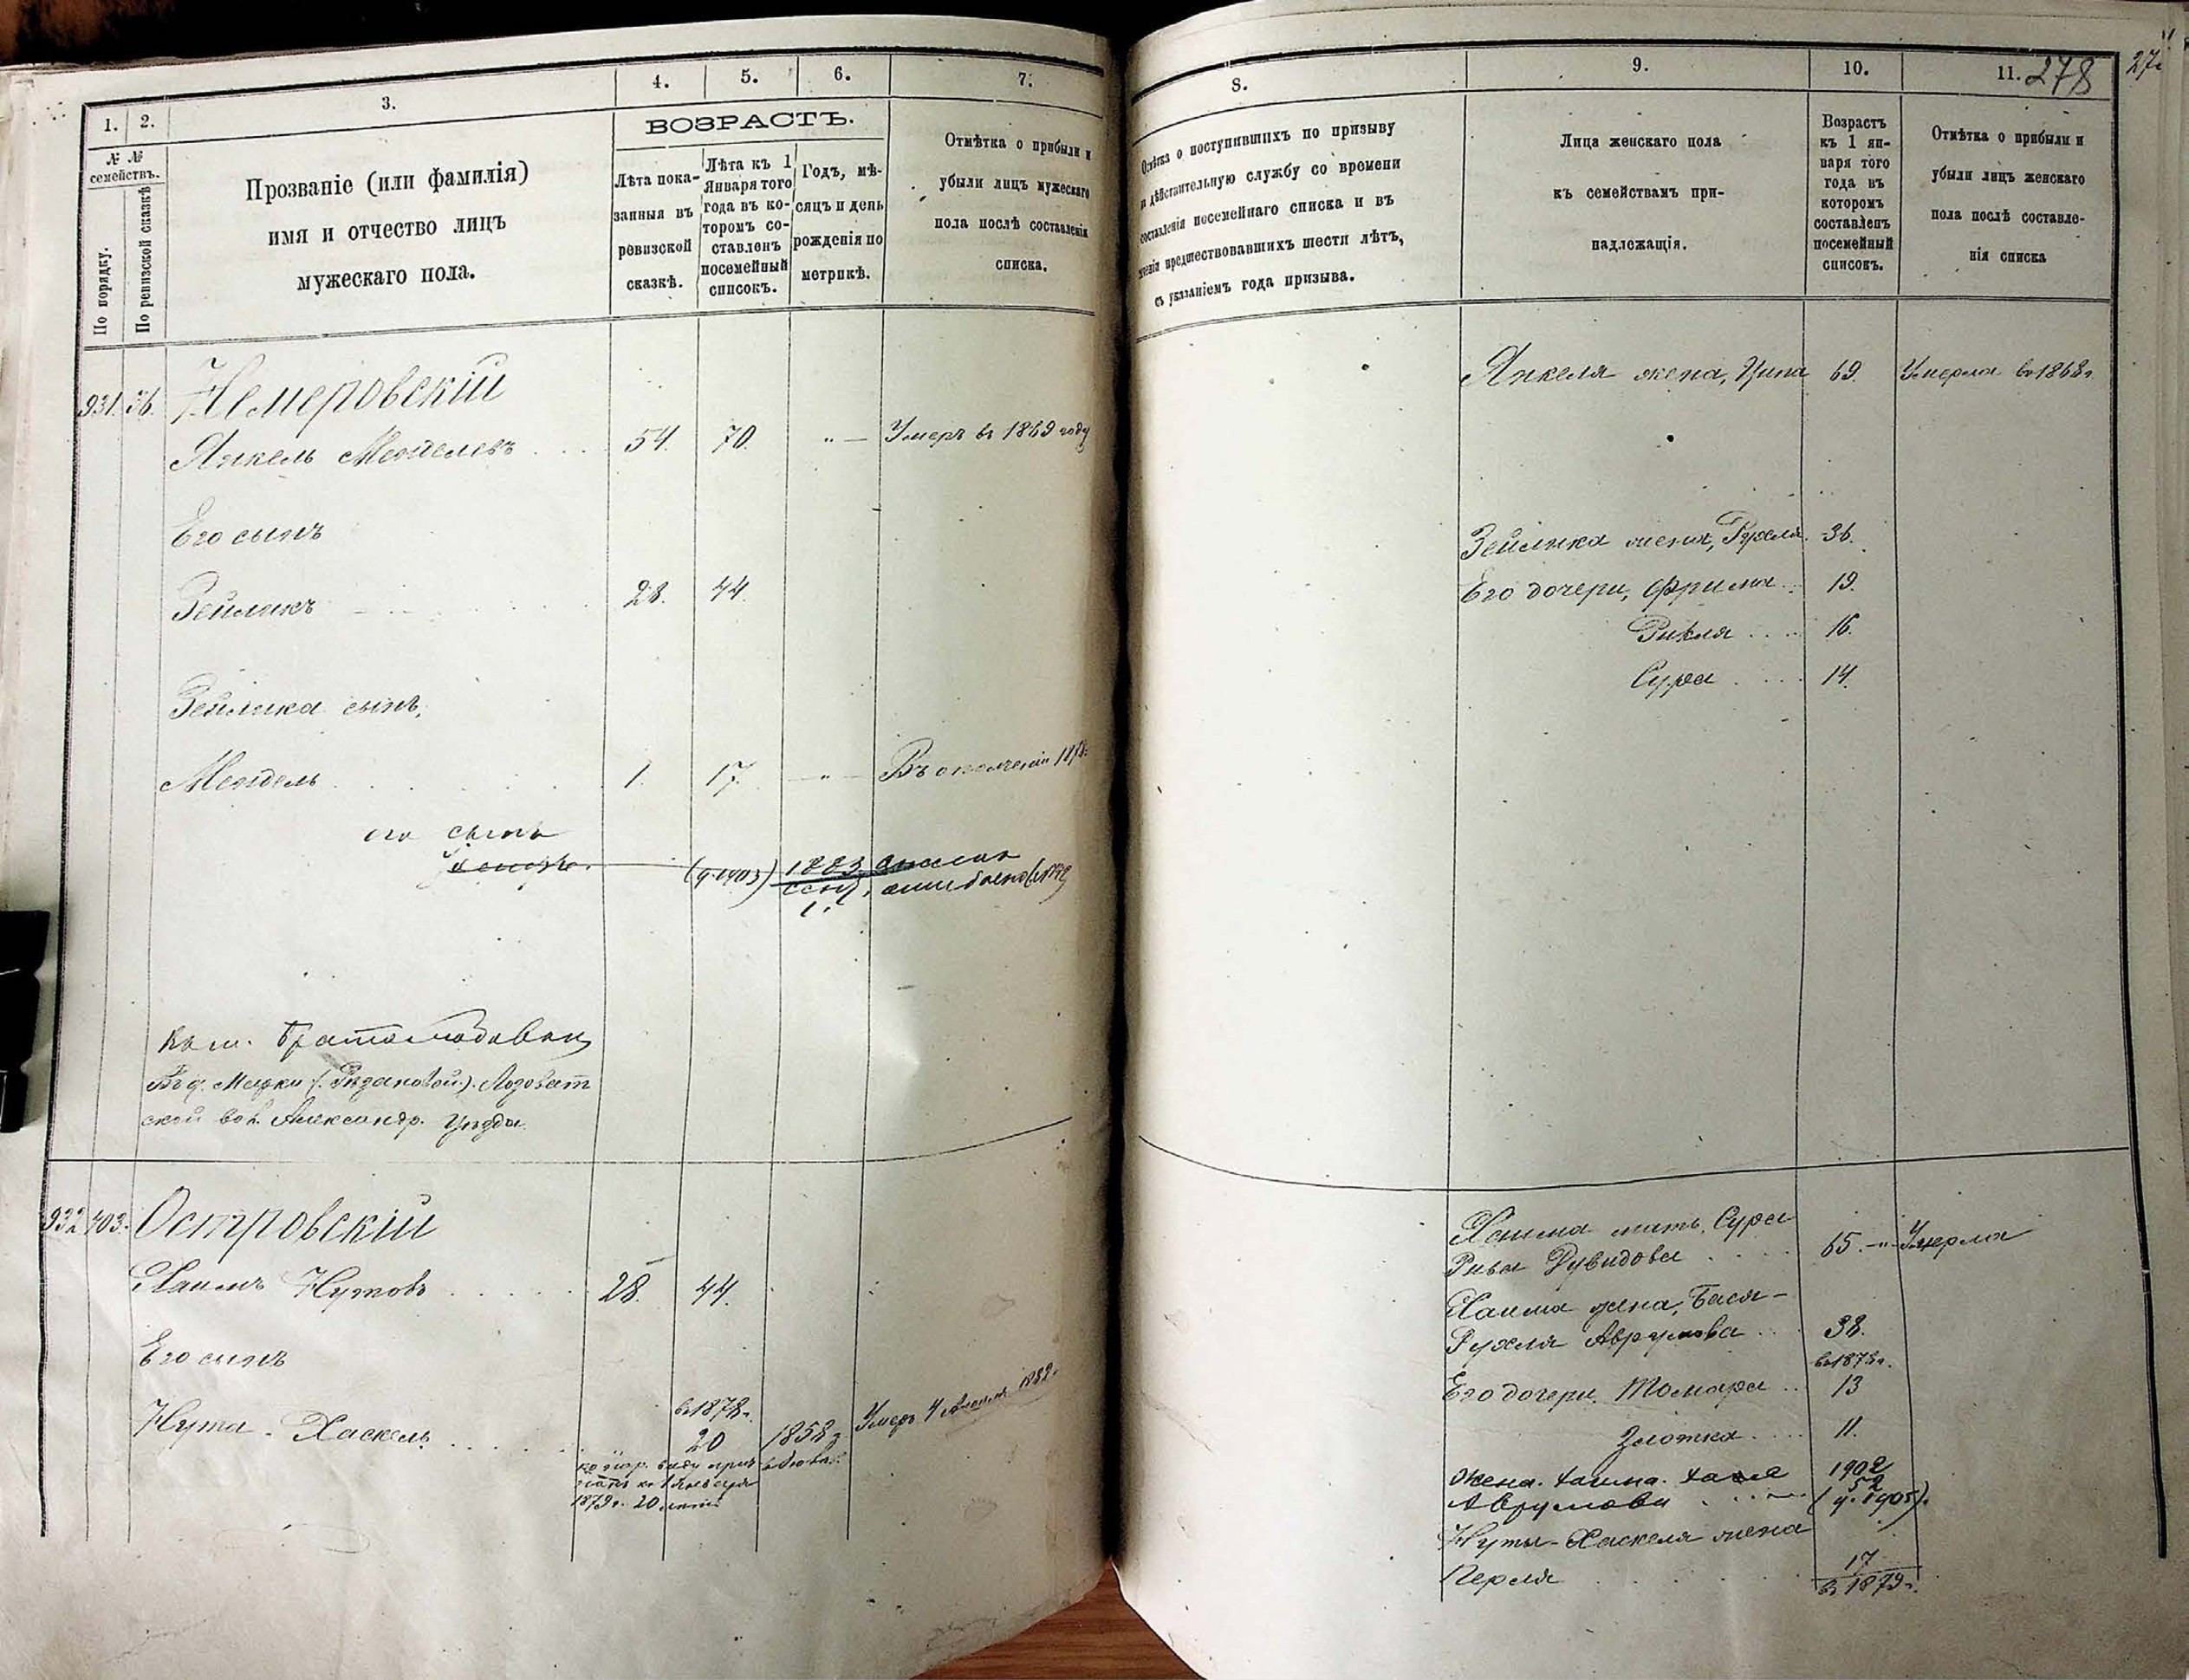 1. 2. 3. 4. 5. 6. 7.
№ №
семействъ.
По порядку.
По ревизской сказкѣ
Прозваніе (или фамилія)
имя и отчество лицъ
мужескаго пола.
ВОЗРАСТЪ.
Лѣта пока-
занныя въ
ревизской
сказкѣ.
Лѣта къ 1
Января того
года въ ко-
торомъ со-
ставленъ
посемейный
списокъ.
Годъ, мѣ-
сяцъ и день
рожденія по
метрикѣ.
Отмѣтка о прибыли и
убыли лицъ мужескаго
пола послѣ составленія
списка.
931. 36. Немеровскій
Янкель Менделевъ 54. 70. Умеръ въ 1869 году
Его сынъ
Зейликъ 28. 44.
Зейлика сынъ,
Мендель 1. 17. Въ ополченіи
его сынъ
1883
ошибочно
Ладоват
ской вол. Александр. уѣзда.
932 403. Островскій
Хаимъ Нутовъ 28. 44.
Его сынъ
Нута-Хаскель
въ 1878г.
20 1858г Умеръ 4 Апреля 1882г
1879г. 20 лѣтъ
8. 9. 10. 11. 278
Отмѣтка о поступившихъ по призыву
дѣйствительную службу со времени
составленія посемейнаго списка и въ
предшествовавшихъ шести лѣтъ,
съ указаніемъ года призыва.
Лица женскаго пола
къ семействамъ при-
надлежащія.
Возрастъ
къ 1 ян-
варя того
года въ
которомъ
составленъ
посемейный
списокъ.
Отмѣтка о прибыли и
убыли лицъ женскаго
пола послѣ составле-
нія списка
Янкеля жена, Ципа 69. Умерла въ 1868г.
Зейлика жена, Рухля 36.
Его дочери, Фрима 19.
Рикля 16.
Сура 14.
Хаима мать, Сура
Рива Дувидова 65. Умерла
Хаима жена, Бася-
Рухля Аврумова 38.
въ 1878г.
Его дочери, Томара 13
Злотка 11.
Жена Хаима Хая 1902
52
Аврумова (ч. 1905).
Нуты-Хаскеля жена
Перля 17
въ 1879г.